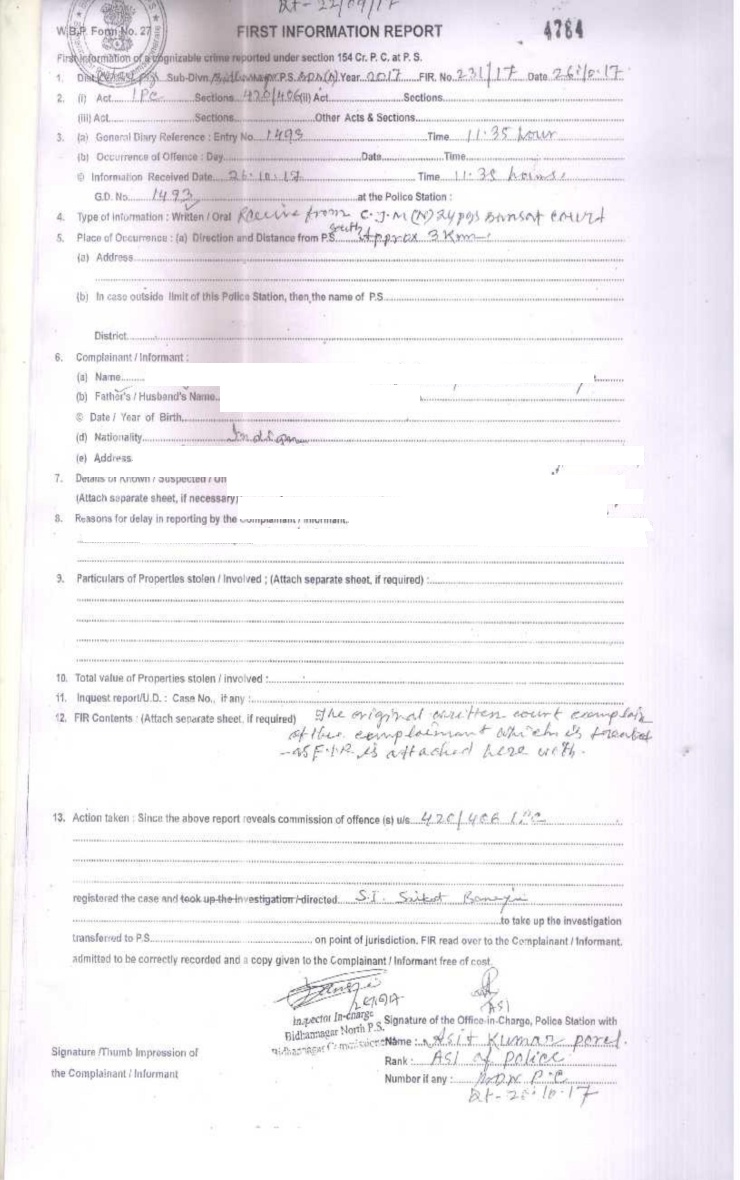 Dt - 22/09/17
W.B.P. Form No. 27
FIRST INFORMATION REPORT
4764
First Information of a cognizable crime reported under section 154 Cr. P. C. at P. S.
1. Dist. Sub-Divn. P.S. BDN(N) Year 2017 FIR. No. 231/17 Date 26.10.17
2. (i) Act IPC Sections 420/406 (ii) Act Sections
(iii) Act Sections Other Acts & Sections
3. (a) General Diary Reference : Entry No. 1493 Time 11.35 hour
(b) Occurrence of Offence : Day Date Time
© Information Received Date 26.10.17 Time 11.35 hours.
G.D. No. 1493 at the Police Station :
4. Type of information : Written / Oral Receive from C.J.M (N) 24 pgs Court
5. Place of Occurrence : (a) Direction and Distance from P.S. South Approx 3 Km.
(a) Address
(b) In case outside limit of this Police Station, then the name of P.S.
District
6. Complainant / Informant :
(a) Name
(b) Father's / Husband's Name
© Date / Year of Birth
(d) Nationality Indian
(e) Address
7. Details of Known / Suspected / Un
(Attach separate sheet, if necessary)
8. Reasons for delay in reporting by the Complainant / Informant.
9. Particulars of Properties stolen / Involved ; (Attach separate sheet, if required) :
10. Total value of Properties stolen / involved :
11. Inquest report/U.D. : Case No., if any :
12. FIR Contents : (Attach separate sheet, if required) The original written court complain
of the complainant which is treated
as F.I.R is attached here with.
13. Action taken : Since the above report reveals commission of offence (s) u/s 420/406 IPC
registered the case and took up the investigation / directed S.I. Saikat Banerjee
to take up the investigation
transferred to P.S. on point of jurisdiction. FIR read over to the Complainant / Informant.
admitted to be correctly recorded and a copy given to the Complainant / Informant free of cost.
ASI
Inspector In-charge
Bidhannagar North P.S.
Bidhannagar Commissionerate
Signature of the Office-in-Charge, Police Station with
Name : Asit Kumar Porel.
Signature /Thumb Impression of
the Complainant / Informant
Rank : ASI of police
Number if any : BDN P.C
Dt - 26.10.17